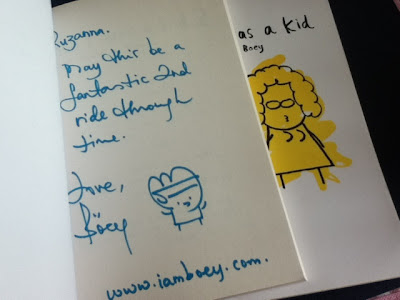 Ruzanna.
May this be a
fantastic 2nd
ride through
time.
Love,
Böey
www.iamboey.com.
as a Kid
Boey